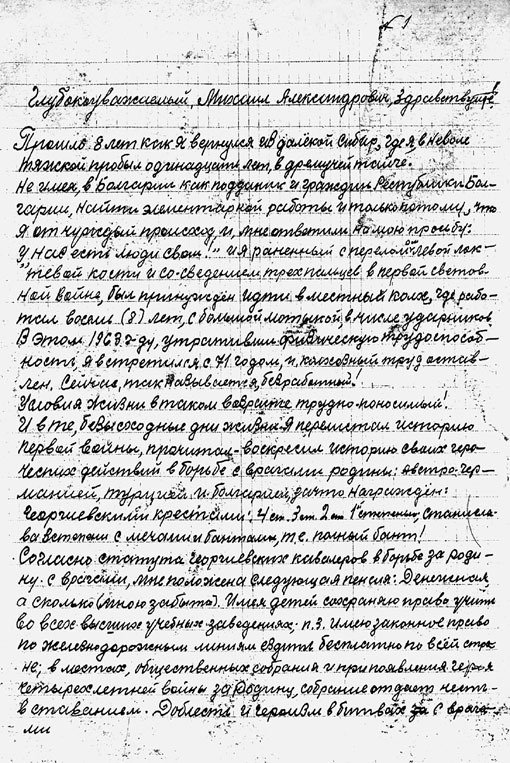 № 1
Глубокоуважаемый, Михаил Александрович, здравствуйте!
Прошло 8 лет как я вернулся из далёкой Сибир, где я в неволе
тяжкой пробыл одинадцать лет, в дремучей тайге.
Не имея, в Болгарии как подданик и граждин Республики Бол-
гарии, найти элементарной работы и только потому, что
я от чужедый происход, и, мне ответили на мою просьбу:
у нас есть люди свои!" и я раненный с переломом левой лок-
"тевой кости и со-сведением трех пальцев в первой светов-
ной войне, был принужден идти в местный колх, где рабо-
тал восемь (8) лет, с большой мотыкой, в числе ударников
В этом 1968 г-ду, утративши физическую трудоспособ-
ность, я встретился с 71 годом, и, колхозный труд остав-
лен. Сейчас, так называется, безработный!
Условия жизни в таком возрасте трудно-поносимый!
И в те, безвысходные дни жизни я перелистал историю
первой войны, прочитал-воскресил историю своих геро-
ческих действий в борьбе с врагами родины: австро-гер-
манией, турцией и болгарией, за что награжден:
Георгиевскими крестами: 4 ст. 3 ст. 2 ст 1 степени, станисла-
ва 3 степени с мечами и бантами, т.е. полный бант!
Согласно статута георгиевских кавалеров в борьбе за роди-
ну с врагами, мне положена следующая пенсия: Денежная
а сколько (мною забыто). Имея детей сохраняю право учить
во всех высших учебных заведениях; п.3. имею законное право
по железнодорожным линиям ездить бесплатно по всей стра-
не; в местах, общественных собрания и при появления героя
четырехлетней войны за Родину, собрание отдает честь-
вставанием. Доблесть и героизм в битвах за с врага-
ми